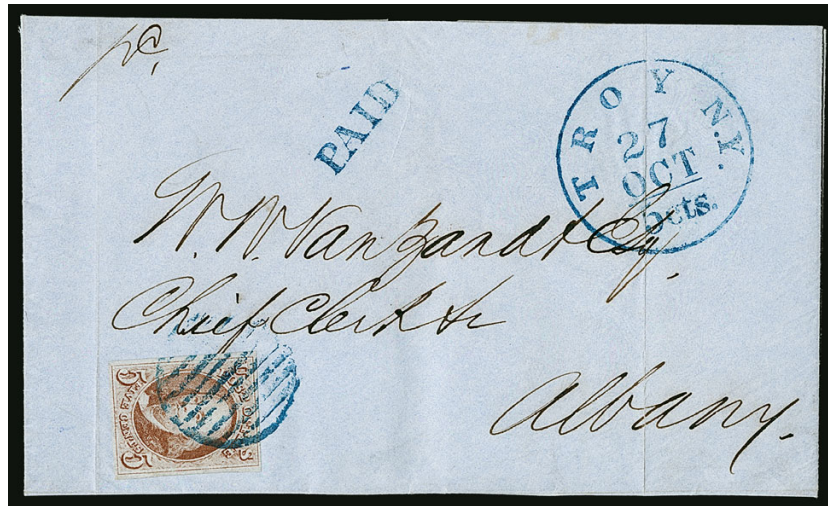 PAID
TROY N.Y.
27
OCT
5cts.
W. W. Van Zandt Esq.
Chief Clerk &c
Albany.
5 5